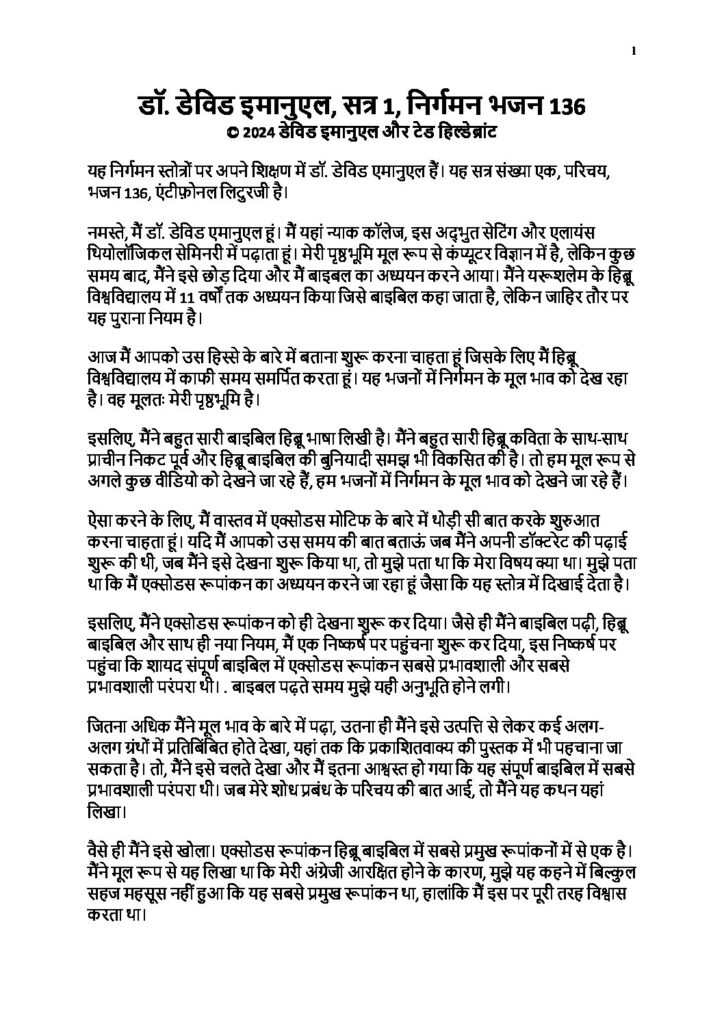 1
डॉ. डेविड इमानुएल, सत्र 1, निर्गमन भजन 136
© 2024 डेविड इमानुएल और टेड हिल्डेब्रांट
यह निर्गमन स्तोत्रों पर अपने शिक्षण में डॉ. डेविड एमानुएल हैं। यह सत्र संख्या एक, परिचय,
भजन 136, एंटीफ़ोनल लिटुरजी है।
नमस्ते, मैं डॉ. डेविड एमानुएल हूं। मैं यहां न्याक कॉलेज, इस अद्भुत सेटिंग और एलायंस
थियोलॉजिकल सेमिनरी में पढ़ाता हूं। मेरी पृष्ठभूमि मूल रूप से कंप्यूटर विज्ञान में है, लेकिन कुछ
समय बाद, मैंने इसे छोड़ दिया और मैं बाइबल का अध्ययन करने आया। मैंने यरूशलेम के हिब्रू
विश्वविद्यालय में 11 वर्षों तक अध्ययन किया जिसे बाइबिल कहा जाता है, लेकिन जाहिर तौर पर
यह पुराना नियम है।
आज मैं आपको उस हिस्से के बारे में बताना शुरू करना चाहता हूं जिसके लिए मैं हिब्रू
विश्वविद्यालय में काफी समय समर्पित करता हूं। यह भजनों में निर्गमन के मूल भाव को देख रहा
है। वह मूलतः मेरी पृष्ठभूमि है।
इसलिए, मैंने बहुत सारी बाइबिल हिब्रू भाषा लिखी है। मैंने बहुत सारी हिब्रू कविता के साथ-साथ
प्राचीन निकट पूर्व और हिब्रू बाइबिल की बुनियादी समझ भी विकसित की है। तो हम मूल रूप से
अगले कुछ वीडियो को देखने जा रहे हैं, हम भजनों में निर्गमन के मूल भाव को देखने जा रहे हैं।
ऐसा करने के लिए, मैं वास्तव में एक्सोडस मोटिफ के बारे में थोड़ी सी बात करके शुरुआत
करना चाहता हूं। यदि मैं आपको उस समय की बात बताऊं जब मैंने अपनी डॉक्टरेट की पढ़ाई
शुरू की थी, जब मैंने इसे देखना शुरू किया था, तो मुझे पता था कि मेरा विषय क्या था। मुझे पता
था कि मैं एक्सोडस रूपांकन का अध्ययन करने जा रहा हूं जैसा कि यह स्तोत्र में दिखाई देता है।
इसलिए, मैंने एक्सोडस रूपांकन को ही देखना शुरू कर दिया। जैसे ही मैंने बाइबिल पढ़ी, हिब्रू
बाइबिल और साथ ही नया नियम, मैं एक निष्कर्ष पर पहुंचना शुरू कर दिया, इस निष्कर्ष पर
पहुंचा कि शायद संपूर्ण बाइबिल में एक्सोडस रूपांकन सबसे प्रभावशाली और सबसे
प्रभावशाली परंपरा थी। . बाइबल पढ़ते समय मुझे यही अनुभूति होने लगी।
जितना अधिक मैंने मूल भाव के बारे में पढ़ा, उतना ही मैंने इसे उत्पत्ति से लेकर कई अलग-
अलग ग्रंथों में प्रतिबिंबित होते देखा, यहां तक कि प्रकाशितवाक्य की पुस्तक में भी पहचाना जा
सकता है। तो, मैंने इसे चलते देखा और मैं इतना आश्वस्त हो गया कि यह संपूर्ण बाइबिल में सबसे
प्रभावशाली परंपरा थी। जब मेरे शोध प्रबंध के परिचय की बात आई, तो मैंने यह कथन यहां
लिखा।
वैसे ही मैंने इसे खोला। एक्सोडस रूपांकन हिब्रू बाइबिल में सबसे प्रमुख रूपांकनों में से एक है।
मैंने मूल रूप से यह लिखा था कि मेरी अंग्रेजी आरक्षित होने के कारण, मुझे यह कहने में बिल्कुल
सहज महसूस नहीं हुआ कि यह सबसे प्रमुख रूपांकन था, हालांकि मैं इस पर पूरी तरह विश्वास
करता था।